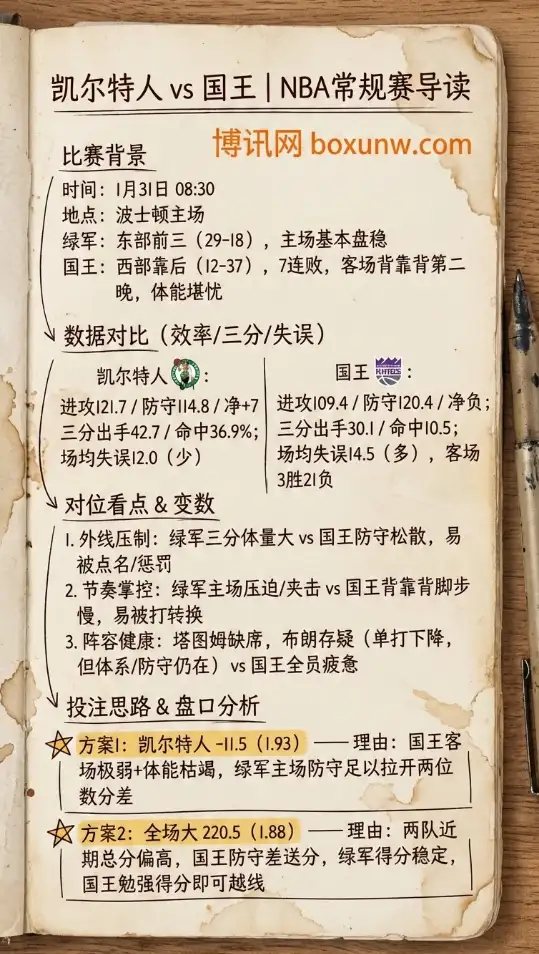 凯尔特人 vs 国王 | NBA常规赛导读
博讯网 boxunw.com
比赛背景
时间：1月31日 08:30
地点：波士顿主场
绿军：东部前三（29-18），主场基本盘稳
国王：西部靠后（12-37），7连败，客场背靠背第二
晚，体能堪忧
数据对比（效率/三分/失误）
凯尔特人：
进攻121.7 / 防守114.8 / 净+7
三分出手42.7 / 命中36.9%；
场均失误12.0（少）
国王：
KINGS
进攻109.4 / 防守120.4 / 净负；
三分出手30.1 / 命中10.5；
场均失误14.5（多），客场
3胜21负
对位看点 & 变数
1. 外线压制：绿军三分体量大 vs 国王防守松散，易
被点名/惩罚
2. 节奏掌控：绿军主场压迫/夹击 vs 国王背靠背脚步
慢，易被打转换
3. 阵容健康：塔图姆缺席，布朗存疑（单打下降，
但体系/防守仍在）vs 国王全员疲惫
投注思路 & 盘口分析
方案1：凯尔特人 -11.5（1.93） —— 理由：国王客
场极弱+体能枯竭，绿军主场防守足以拉开两位
数分差
方案2：全场大 220.5（1.88） —— 理由：两队近
期总分偏高，国王防守差送分，绿军得分稳定，
国王勉强得分即可越线